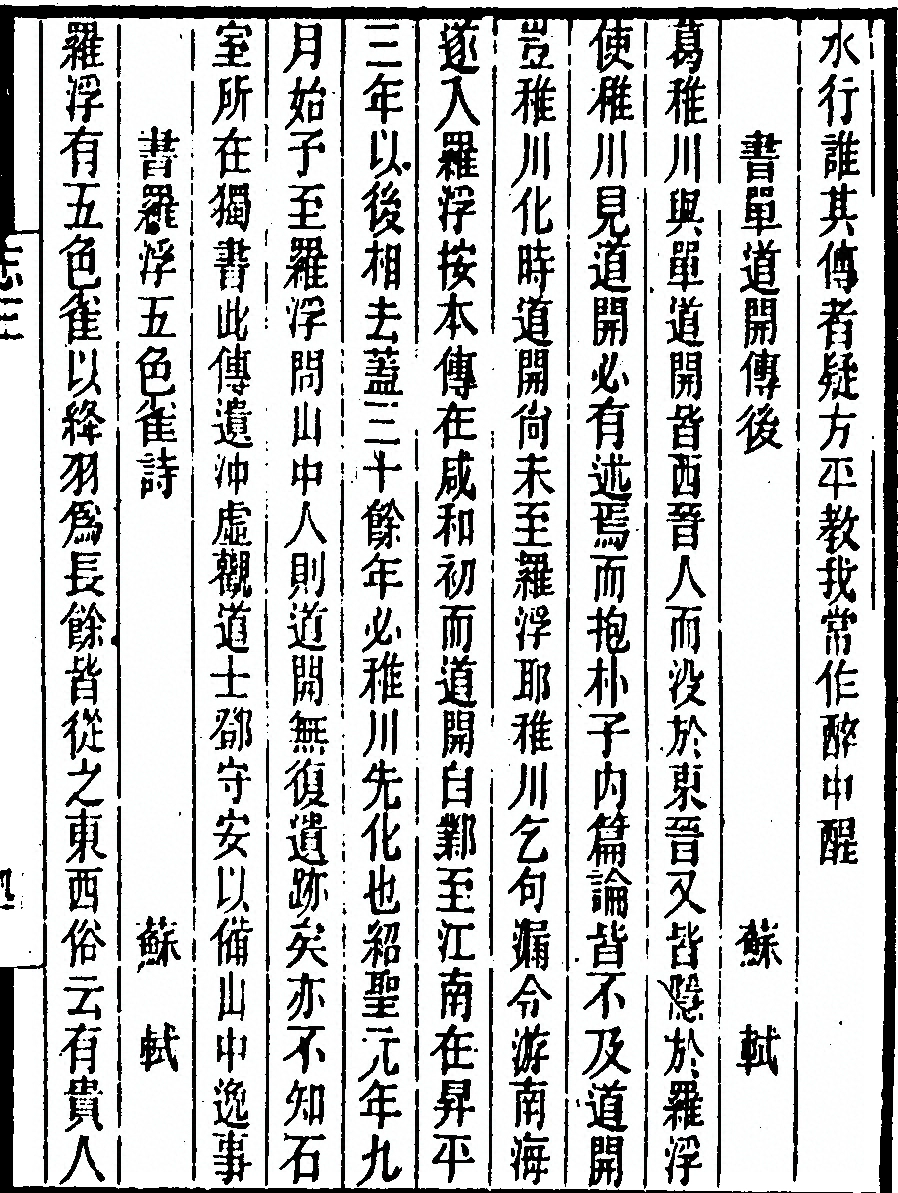 水行誰其傳者疑方平教我常作醉中醒
書單道開傳後 蘇軾
葛稚川與單道開皆西晉人而没於東晉又皆隱於羅浮
使稚川見道開必有述焉而抱朴子内篇論皆不及道開
豈稚川化時道開尚未至羅浮耶稚川乞句漏令游南海
遂入羅浮按本傳在咸和初而道開自鄴至江南在昇平
三年以後相去蓋三十餘年必稚川先化也紹聖元年九
月始予至羅浮問山中人則道開無復遺跡矣亦不知石
室所在獨書此傳遺沖虛觀道士鄧守安以備山中逸事
書羅浮五色雀詩 蘇軾
羅浮有五色雀以絳羽爲長餘皆從之東西俗云有貴人
志三